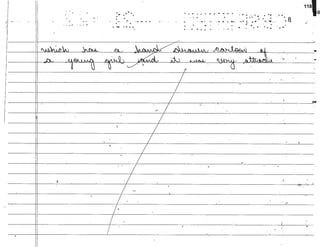 118
which has a hand drawn cartoon of
a young girl and it was very attrac